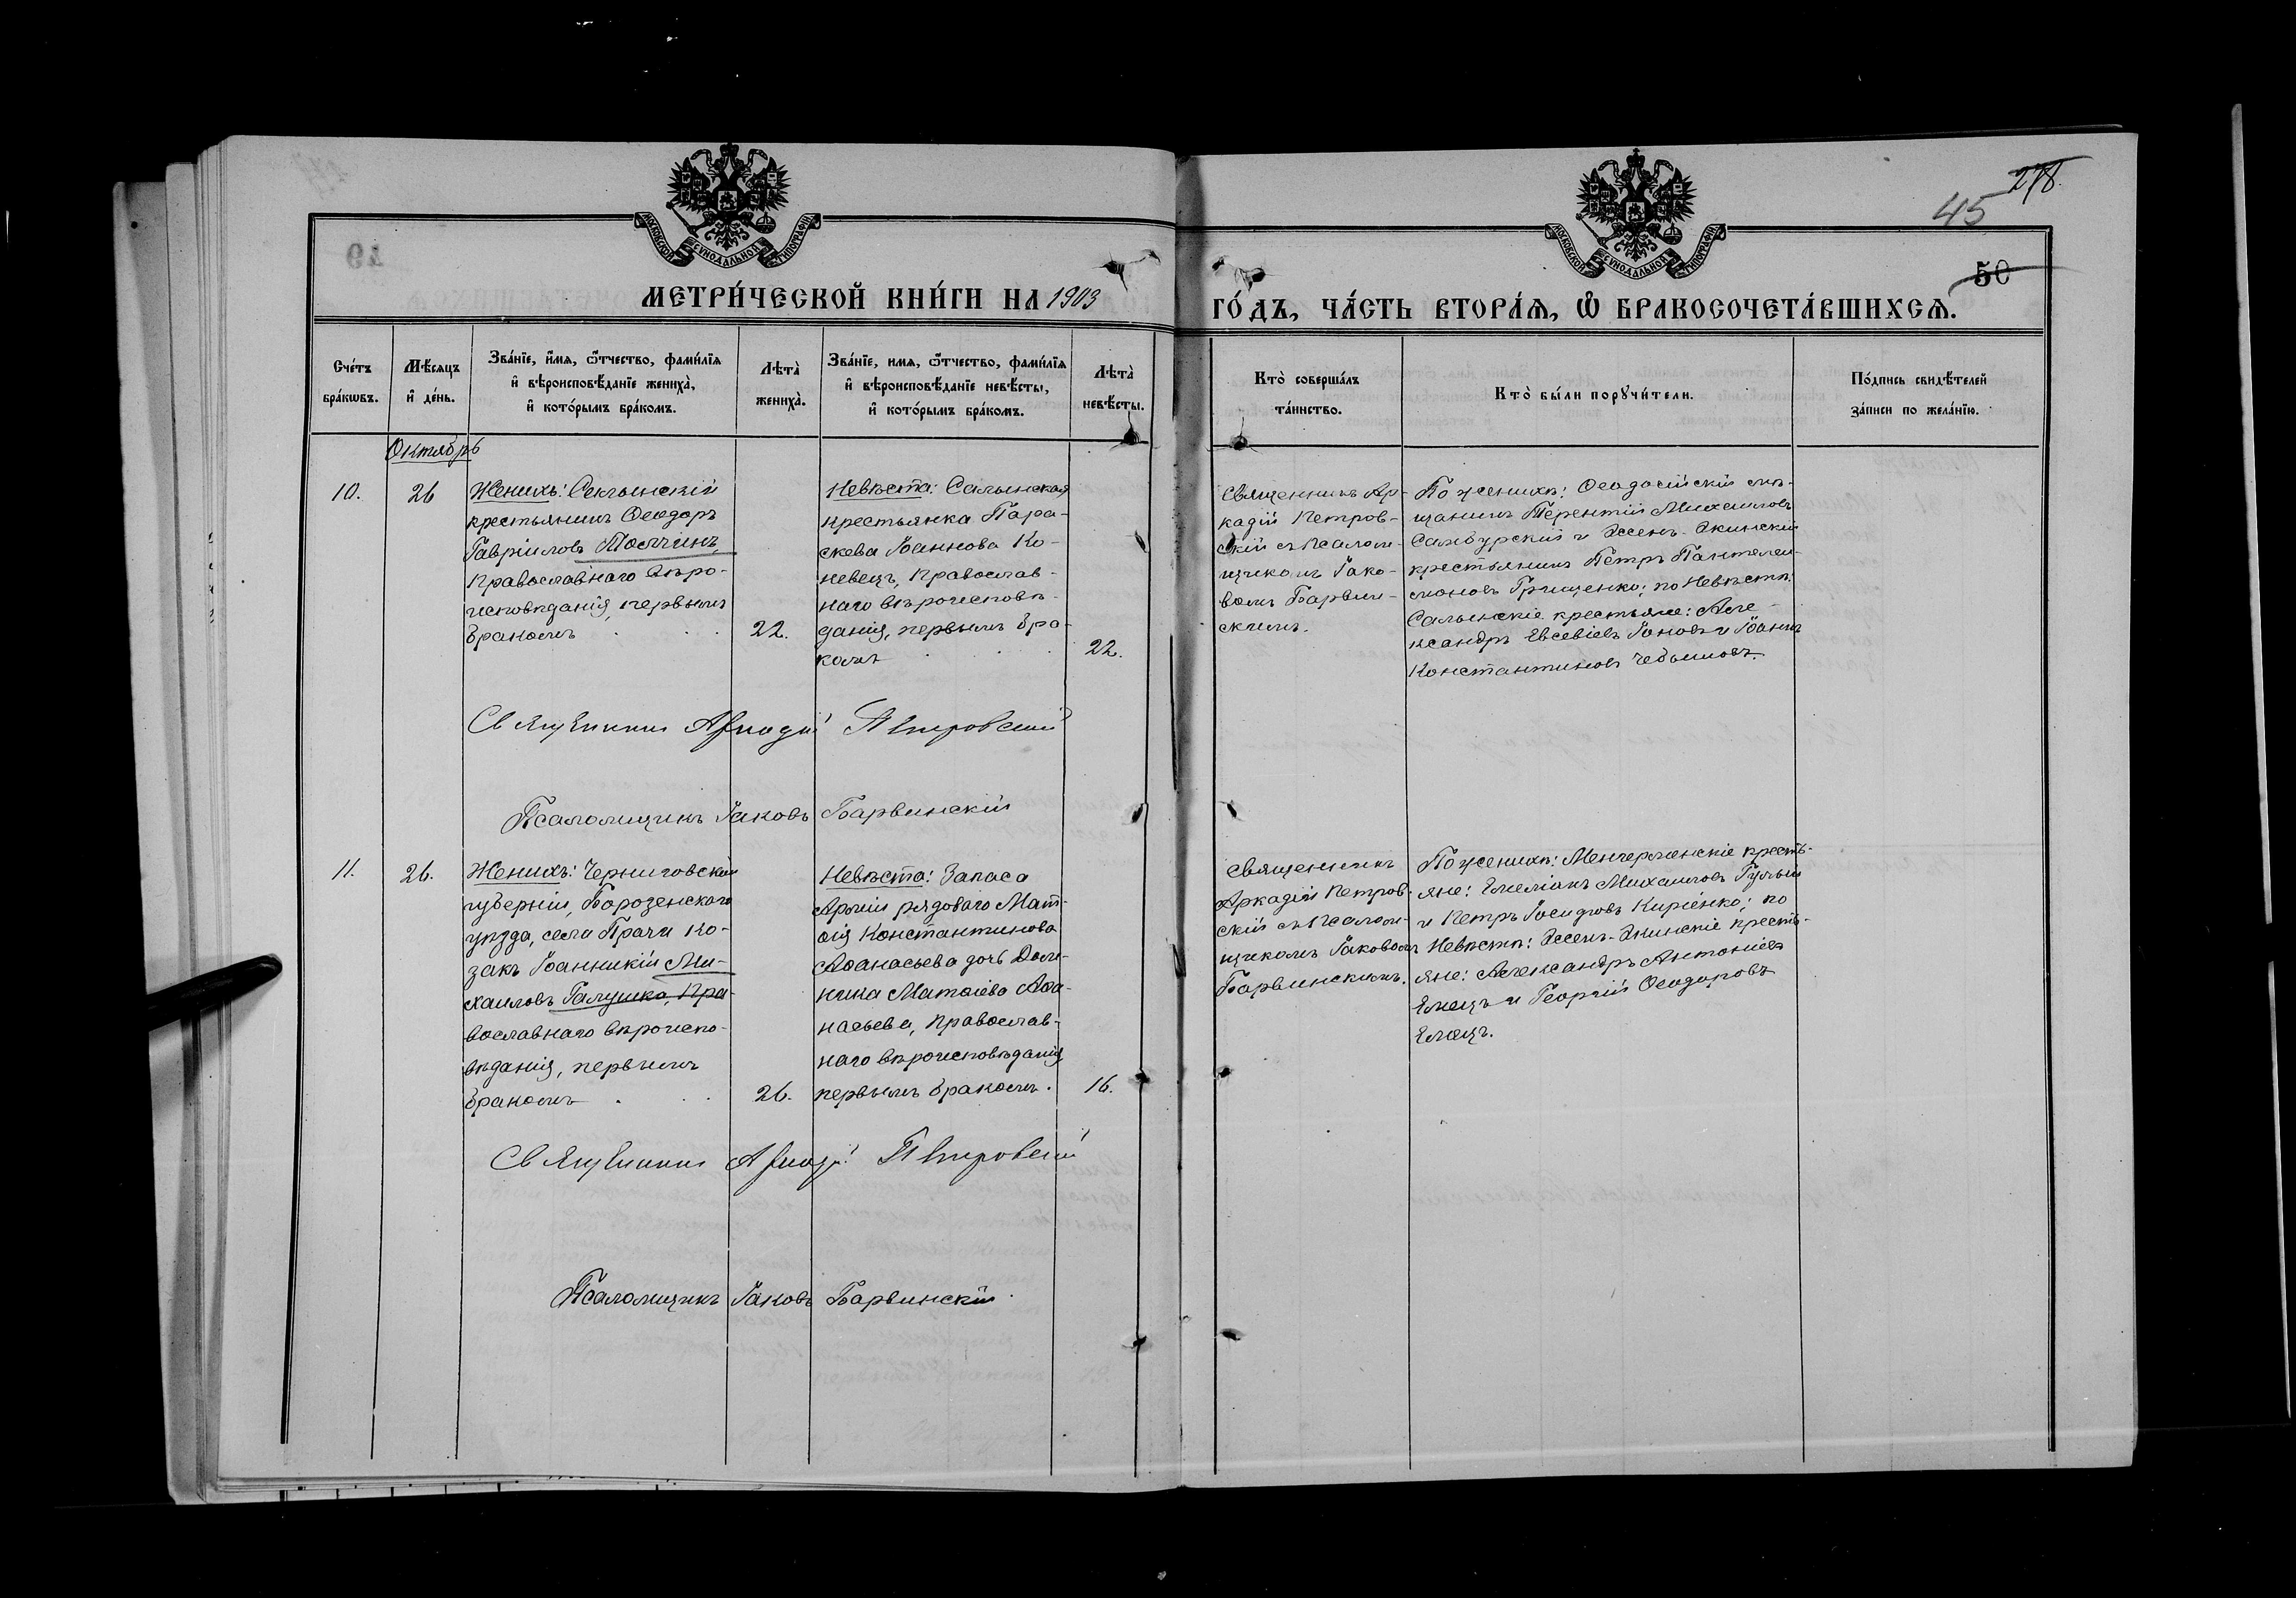 278.
45
50
МОСКОВСКОЙ СѴНОДАЛЬНОЙ ТИПОГРАФІИ
МОСКОВСКОЙ СѴНОДАЛЬНОЙ ТИПОГРАФІИ
МЕТРИ́ЧЕСКОЙ КНИ́ГИ НА 1903
ГО́ДЪ, ЧА́СТЬ ВТОРА́Я, Ѽ БРАКОСОЧЕТА́ВШИХСЯ.
Сче́тъ
бра́кѡвъ.
Мѣ́сяцъ
и҆ де́нь.
Зва́нїе, и҆́мя, ѻ҆́тчество, фами́лїя
и҆ вѣроисповѣ́данїе жениха̀,
и҆ кото́рымъ бра́комъ.
Лѣта̀
жениха̀.
Зва́нїе, имя, ѻ҆́тчество, фами́лїя
и҆ вѣроисповѣ́данїе невѣ́сты,
и҆ кото́рымъ бра́комъ.
Лѣта̀
невѣ́сты.
Кто̀ соверша́лъ
та́инство.
Кто̀ бы́ли порꙋчи́тели.
По́дпись свидѣ́телей
за́писи по жела́нїю.
Октябрь
10.
26
Женихъ:
крестьянинъ Ѳеодоръ
Гавріиловъ Толчинъ,
Православнаго вѣро-
исповѣданія, первымъ
бракомъ
22.
Невѣста: Салынская
крестьянка Пара-
скева Іоаннова Ко-
невецъ, Православ-
наго вѣроисповѣ-
данія, первымъ бра-
комъ
22.
Священникъ Ар-
кадій Петров-
скій съ Псалом-
щикомъ Іако-
вомъ Барвин-
скимъ.
По женихѣ: Ѳеодосійскій мѣ-
щанинъ Терентій Михаиловъ
Самбурскій и Эссенъ-Экинскій
крестьянинъ Петръ Пантелеи-
моновъ Грищенко; по Невѣстѣ:
Салынскіе крестьяне: Але-
ксандръ Евсевіевъ и Іоаннъ
Константиновъ
Священникъ Аркадій Петровскій
Псаломщикъ Іаковъ Барвинскій
11.
26.
Женихъ: Черниговской
губерніи, Борозенскаго
уѣзда, села Прачи Ко-
закъ Іоанникій Ми-
хаиловъ Галушко, Пра-
вославнаго вѣроиспо-
вѣданія, первымъ
бракомъ
26.
Невѣста: Запаса
Арміи рядоваго Мат-
ѳія Константинова
Аѳанасьева дочь Дом-
ника Матѳіева Аѳа-
насьева, Православ-
наго вѣроисповѣданія
первымъ бракомъ.
16.
Священникъ
Аркадій Петров-
скій съ Псалом-
щикомъ Іаковомъ
Барвинскимъ.
По женихѣ: Менгерменскіе кресть-
яне: Емеліанъ Михаиловъ Гулый
и Петръ Іосифовъ Киріенко; по
Невѣстѣ: Эссенъ-Экинскіе кресть-
яне: Александръ Антоніевъ
Емецъ и Георгій Ѳеодоровъ
Емецъ.
Священникъ Аркадій Петровскій
Псаломщикъ Іаковъ Барвинскій.